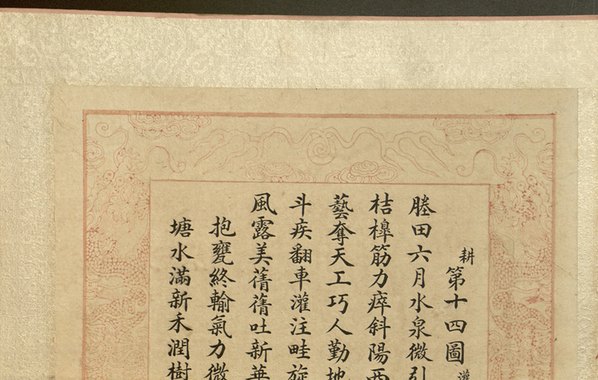 耕第十四圖
塍田六月水泉微引
桔槹筋力瘁斜陽西
藝奪天工巧人勤地
斗疾翻車灌注畦旋
風露美蒨蒨吐新華
抱甕終輸氣力微
塘水滿新禾潤樹